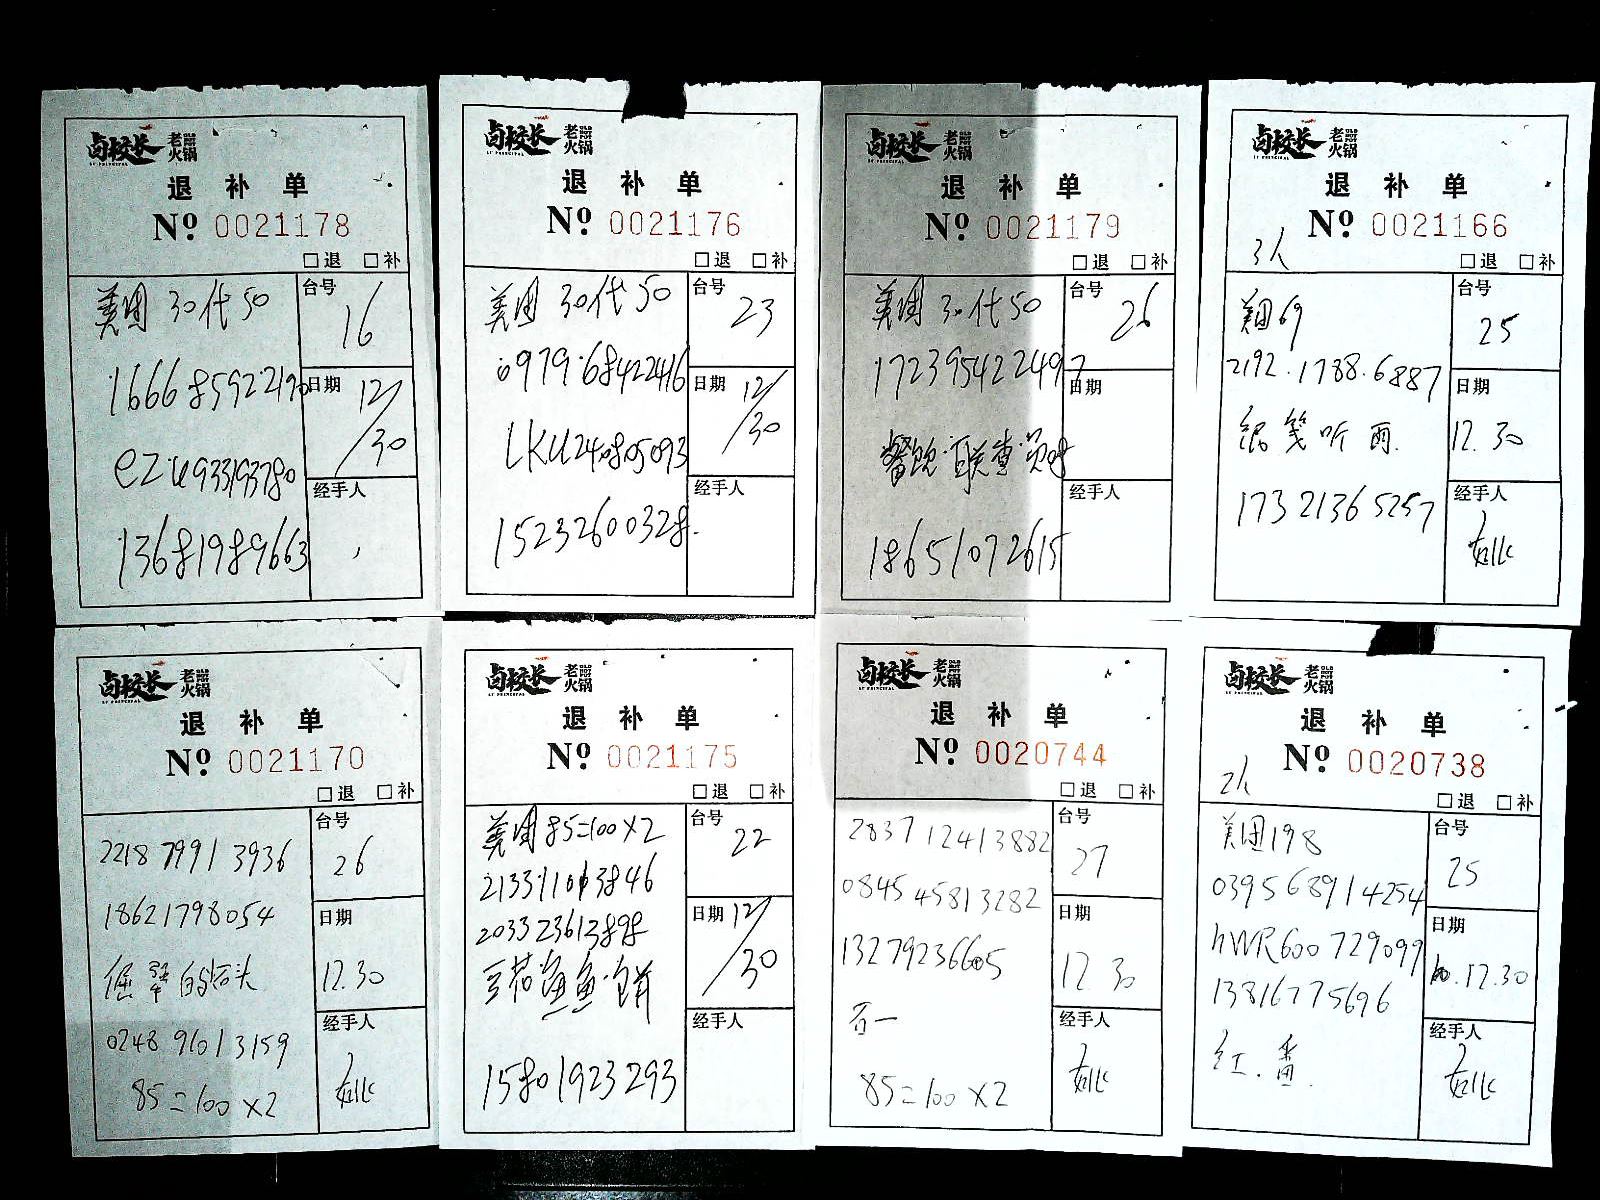 卤校长 老火锅
退补单
Nº 0021178
□退 □补
美团 30代50
台号
16
1666 8592 2190
日期
12/30
ezu933193780
经手人
13681989663
卤校长 老火锅
退补单
Nº 0021176
□退 □补
美团 30代50
台号
23
0979 68422416
日期
12/30
LKU240805093
经手人
15232600328
卤校长 老火锅
退补单
Nº 0021179
□退 □补
美团 30代50
台号
26
172395422497
日期
经手人
18651072615
卤校长 老火锅
退补单
Nº 0021166
3人
□退 □补
美团69
台号
25
2192.1788.6887
日期
12.30
听雨
17321365257
经手人
卤校长 老火锅
退补单
Nº 0021170
□退 □补
台号
26
2218 7991 3936
18621798054
日期
12.30
0248 9601 3159
经手人
85=100×2
卤校长 老火锅
退补单
Nº 0021175
□退 □补
美团85=100×2
台号
22
2133 1101 3846
2033 2361 3898
日期
12/30
经手人
15801923293
卤校长 老火锅
退补单
Nº 0020744
□退 □补
2837 1241 3882
台号
27
0845 4581 3282
日期
12 30
13279236605
经手人
85=100×2
卤校长 老火锅
退补单
Nº 0020738
2人
□退 □补
美团198
台号
25
039568914254
日期
hWR600729099
12.30
13816775696
经手人
红.番